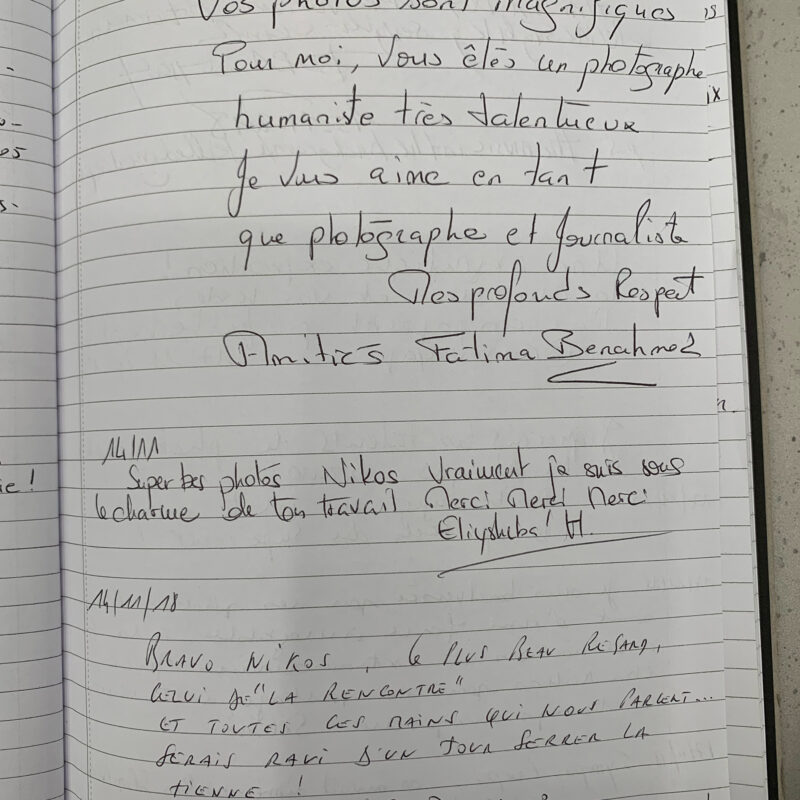 Vos photos sont magnifiques
Pour moi, vous êtes un photographe
humaniste très talentueux
Je vous aime en tant
que photographe et journaliste
Mes profonds Respect
Amitiés Fatima Benahmed
14/11
Superbes photos Nikos vraiment je suis sous
le charme de ton travail Merci Merci Merci
Eliysheba H.
14/11/18
BRAVO NIKOS, LE PLUS BEAU REGARD,
CELUI DE "LA RENCONTRE"
ET TOUTES CES MAINS QUI NOUS PARLENT...
SERAIS RAVI D'UN JOUR SERRER LA
TIENNE !